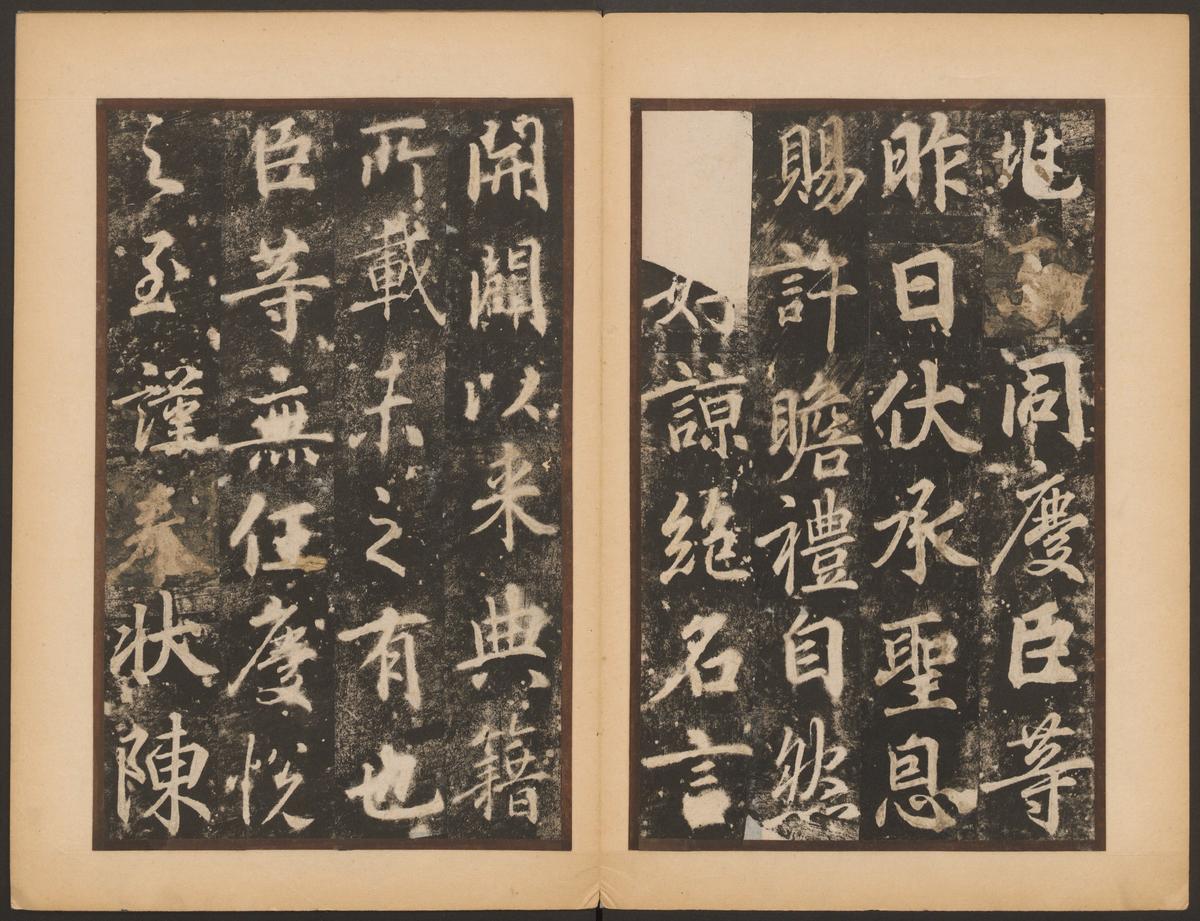 地同慶臣等
昨日伏承聖恩
賜許瞻禮自然
諒絕名言
開闢以来典籍
所載未之有也
臣等無任慶悅
之至謹奉狀陳